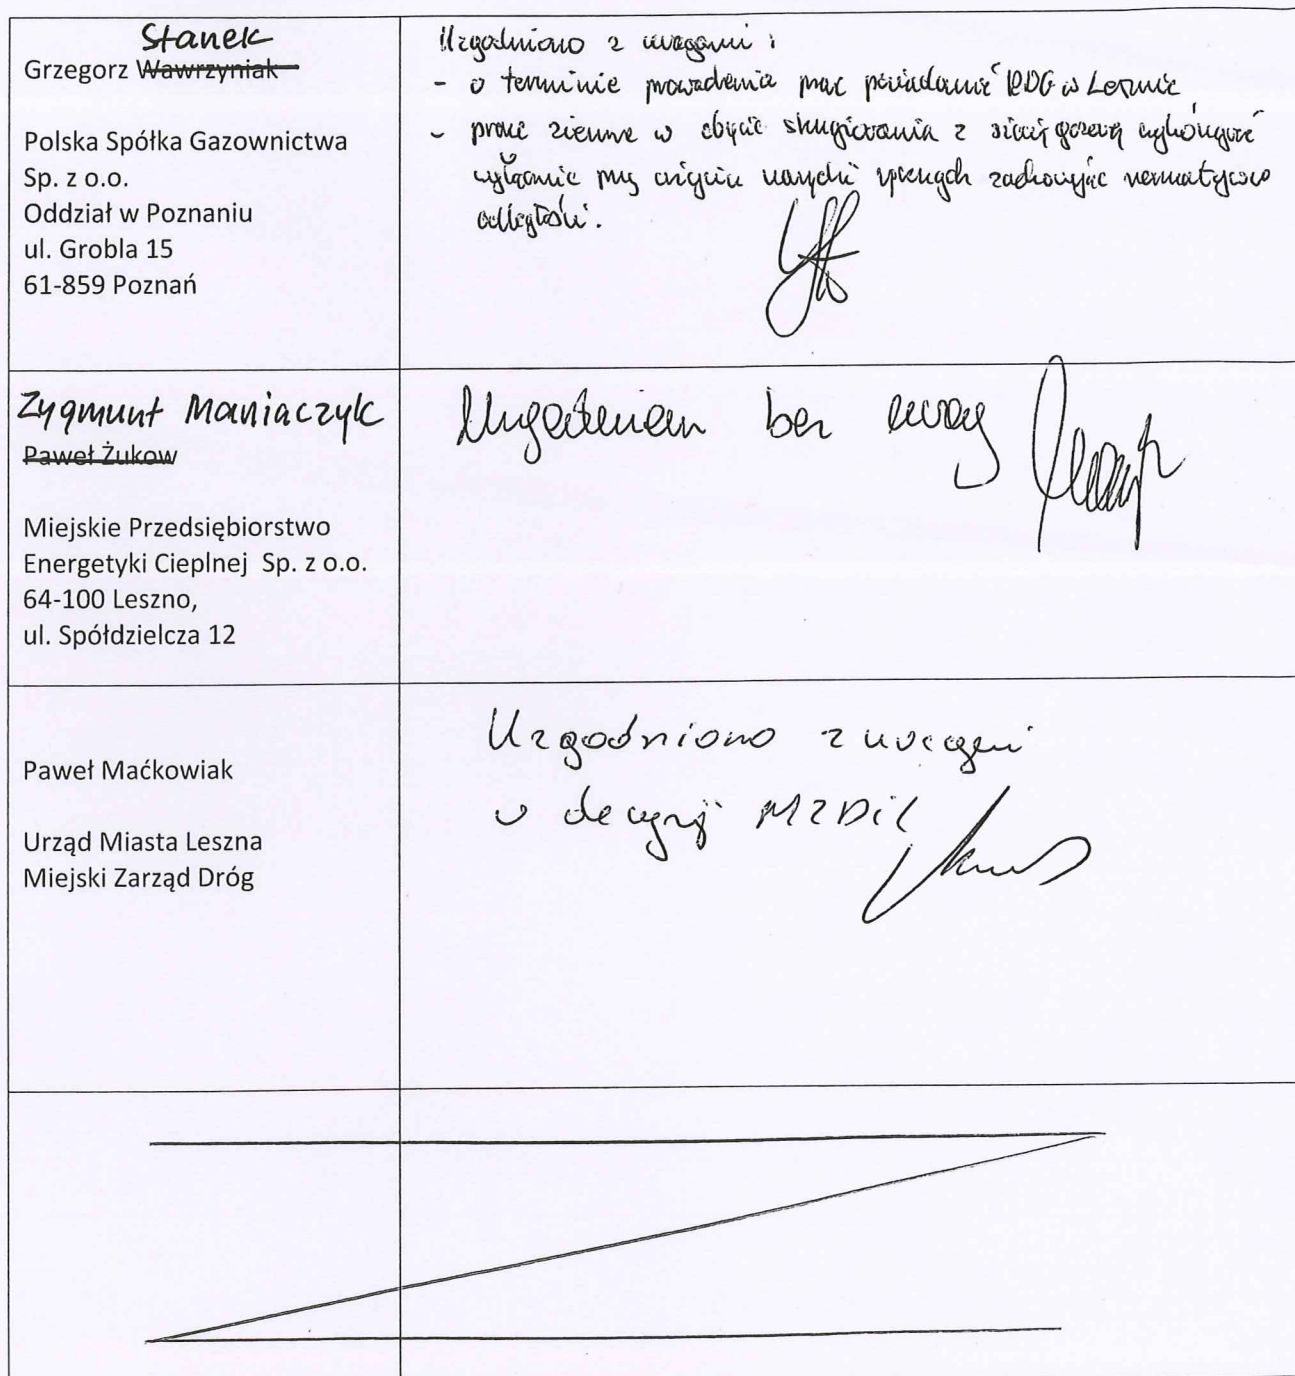 Stanek
Grzegorz Wawrzyniak
Polska Spółka Gazownictwa
Sp. z o.o.
Oddział w Poznaniu
ul. Grobla 15
61-859 Poznań
Uzgodniono z uwagami:
- o terminie prowadzenia prac powiadomić RDG w Lesznie
- prace ziemne w obrębie skrzyżowania z siecią gazową wykonywać
wyłącznie przy użyciu narzędzi ręcznych zachowując normatywne
odległości.
Zygmunt Maniaczyk
Paweł Żukow
Miejskie Przedsiębiorstwo
Energetyki Cieplnej Sp. z o.o.
64-100 Leszno,
ul. Spółdzielcza 12
bez uwag
Paweł Maćkowiak
Urząd Miasta Leszna
Miejski Zarząd Dróg
Uzgodniono z uwagami
w decyzji MZDiI